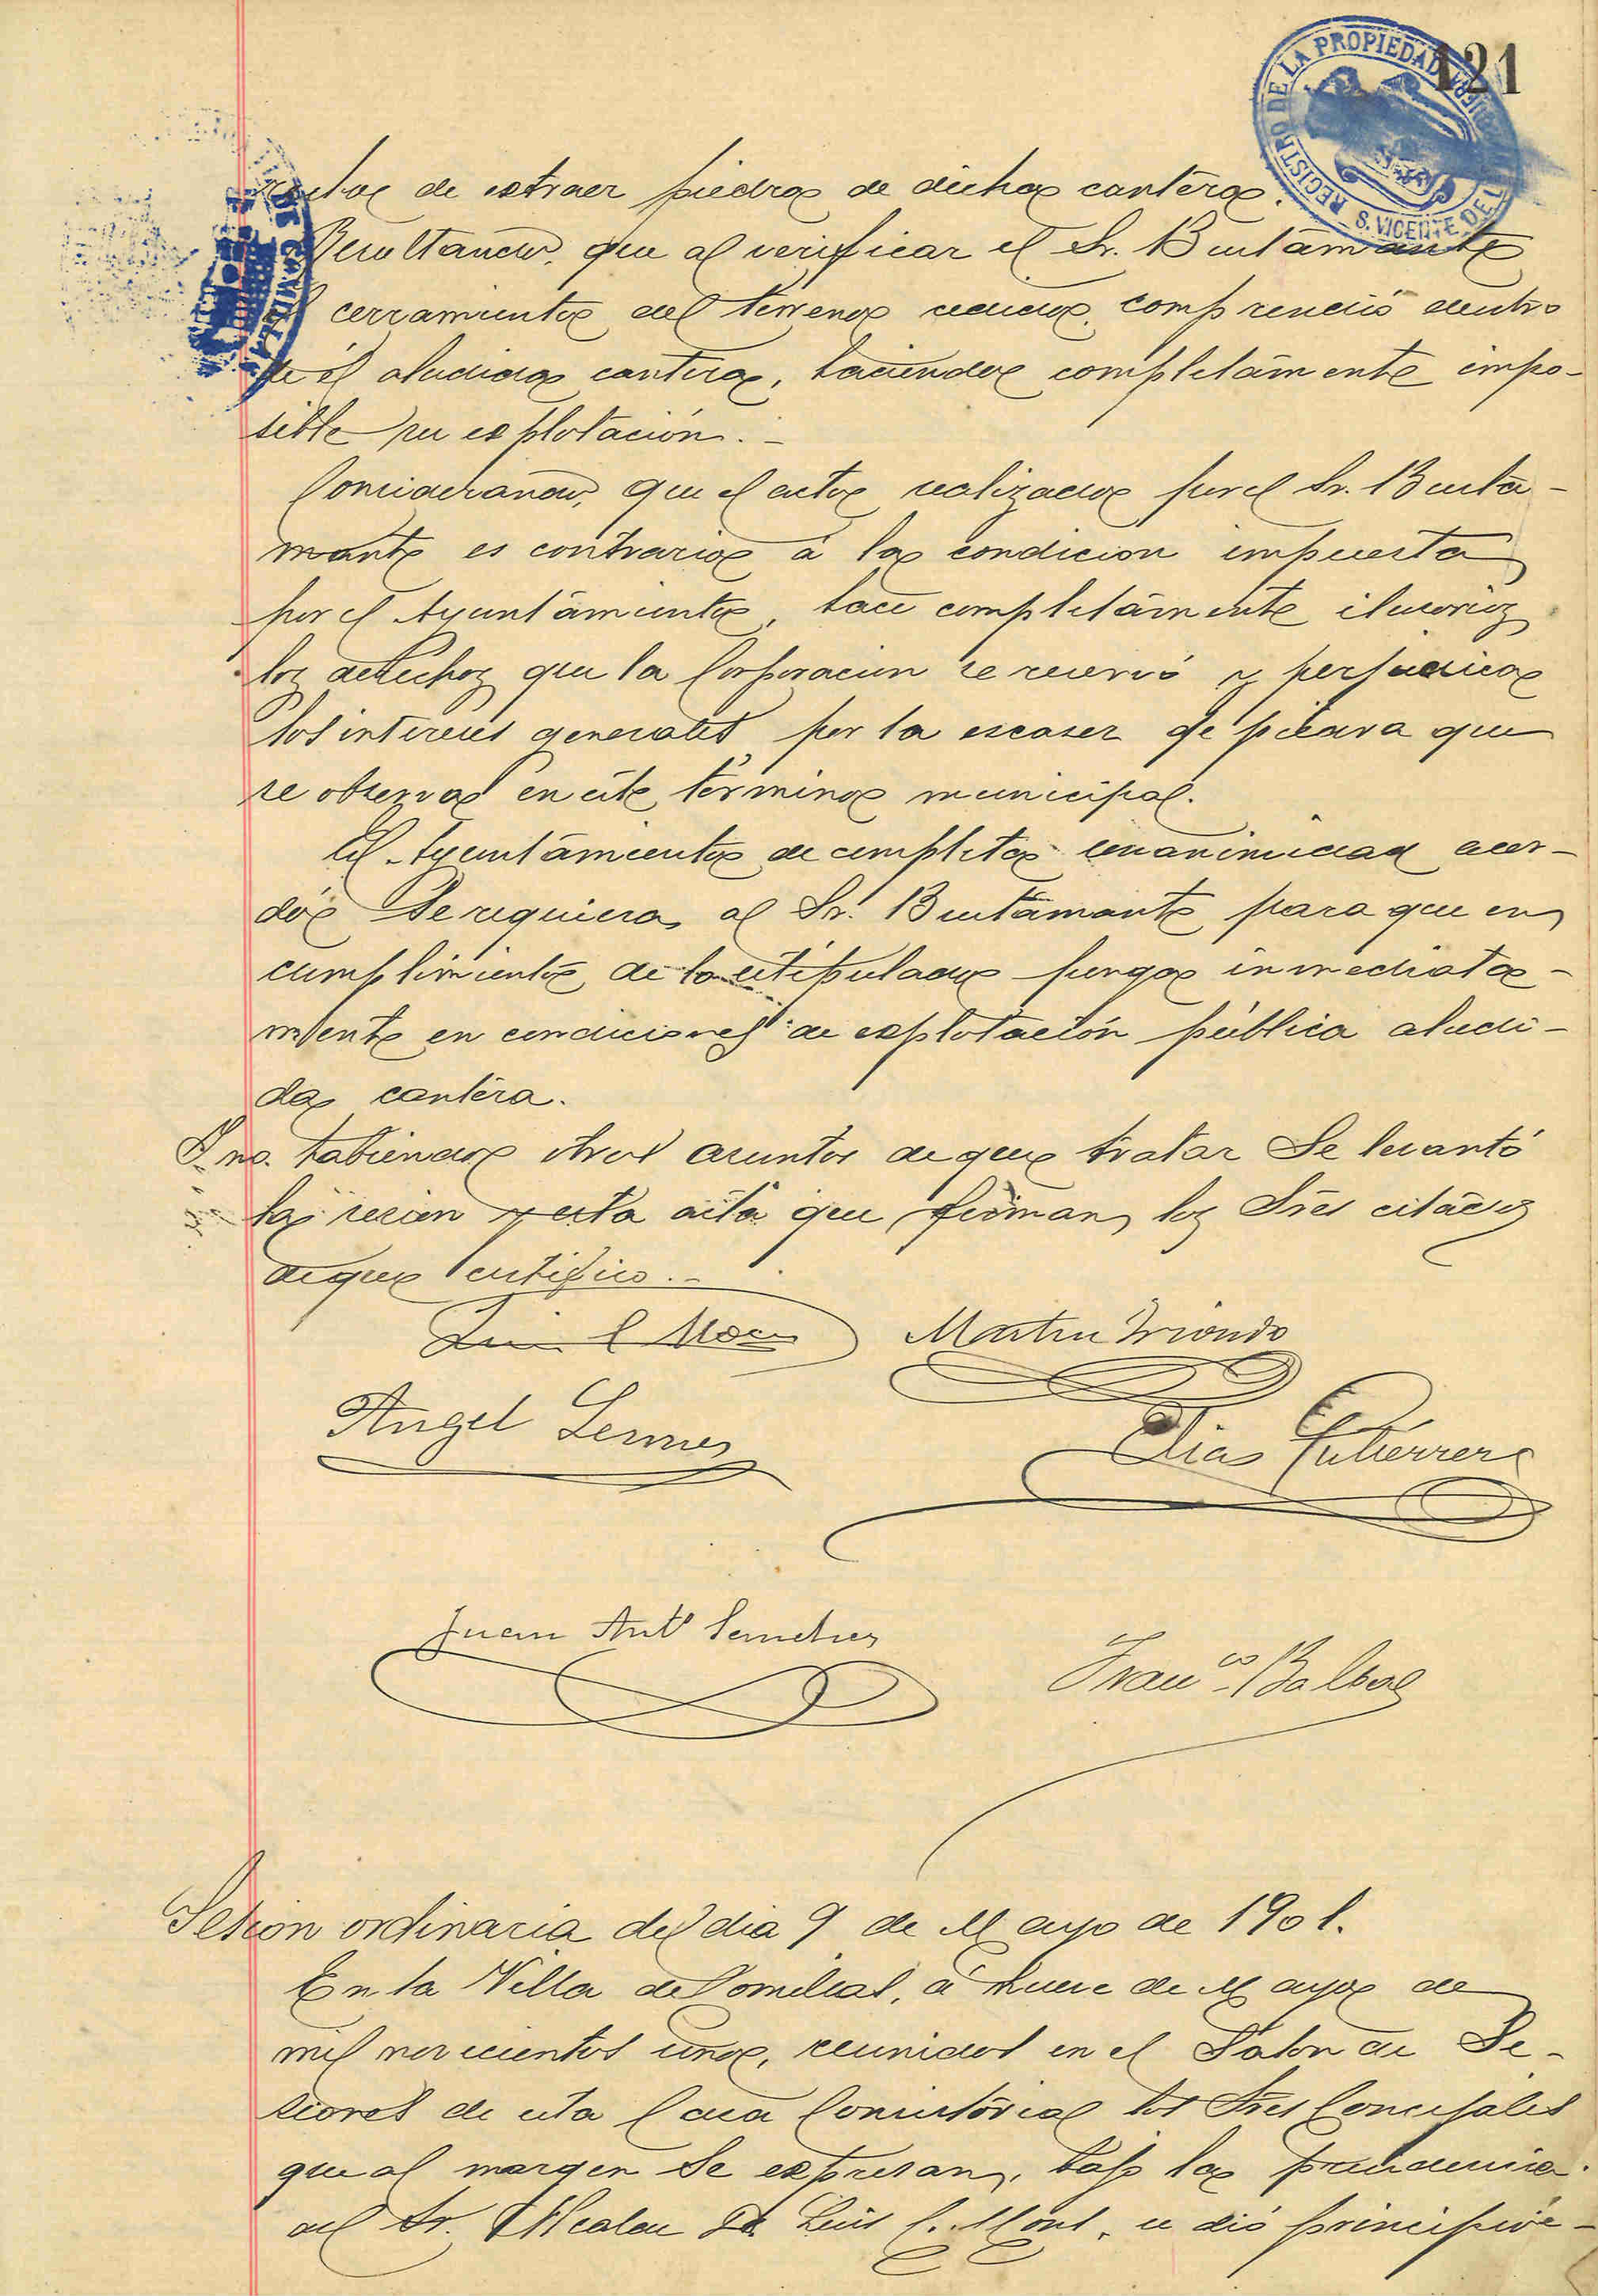 121
REGISTRO DE LA PROPIEDAD
S. VICENTE DE L
DE COMILLAS
de extraer piedra de dicha cantera.
Resultando, que al verificar el Sr. Bustamante
el cerramiento del terreno cedido, comprendió dentro
de él aludida cantera, haciendo completamente impo-
sible su explotación. -
Considerando, que el acto realizado por el Sr. Busta-
mante es contrario á la condicion impuesta
por el Ayuntamiento, hace completamente ilusorios
los derechos que la Corporacion se reservó y perjudica
los intereses generales por la escasez de piedra que
se observa en este término municipal.
El Ayuntamiento de completa unanimidad acor-
dó Se requiera al Sr. Bustamante para que en
cumplimiento de lo estipulado ponga inmediata-
mente en condiciones de explotación pública aludi-
da cantera.
Y no habiendo otros asuntos de que tratar Se levantó
la sesion y esta acta que firman los Sres citados
de que certifico. -
Martin Iriondo
Angel
Elias Gutierrez
Juan Antº Sanchez
Franco Balbas
Sesion ordinaria del dia 9 de Mayo de 1901.
En la Villa de Comillas, á nueve de Mayo de
mil novecientos uno, reunidos en el Salon de Se-
siones de esta Casa Consistorial los Sres Concejales
que al margen Se expresan, bajo la presidencia
del Sr. Alcalde Dn Luis C. Mons, se dió principio á